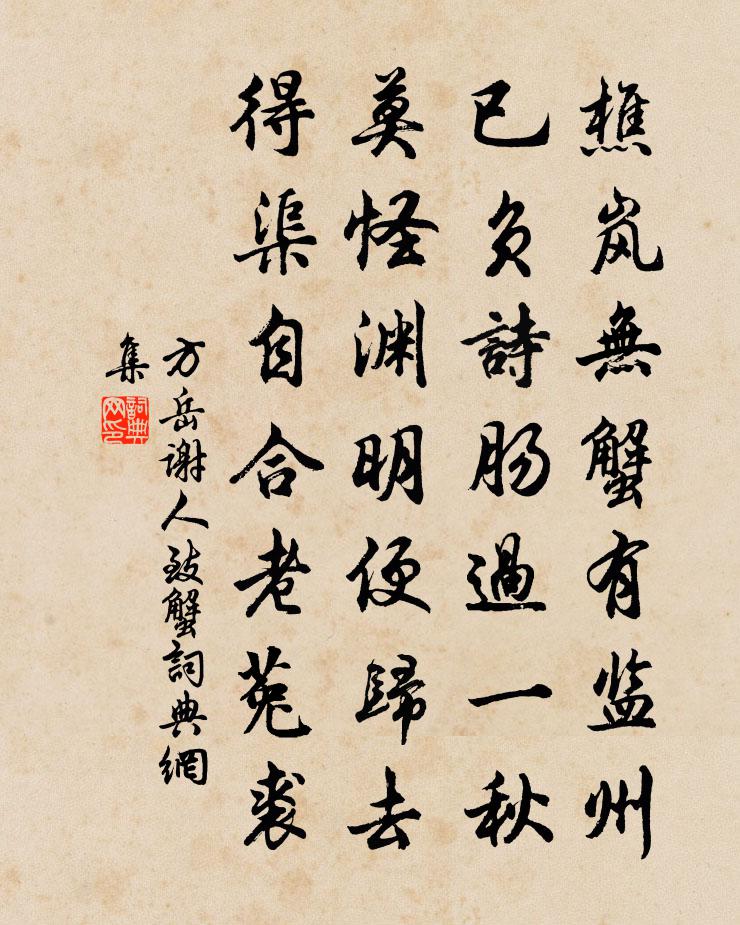 樵岚無蟹有监州
已负詩肠過一秋
莫怪渊明便歸去
得渠自合老菟裘
方岳谢人致蟹詞典網
集
詞典
网印